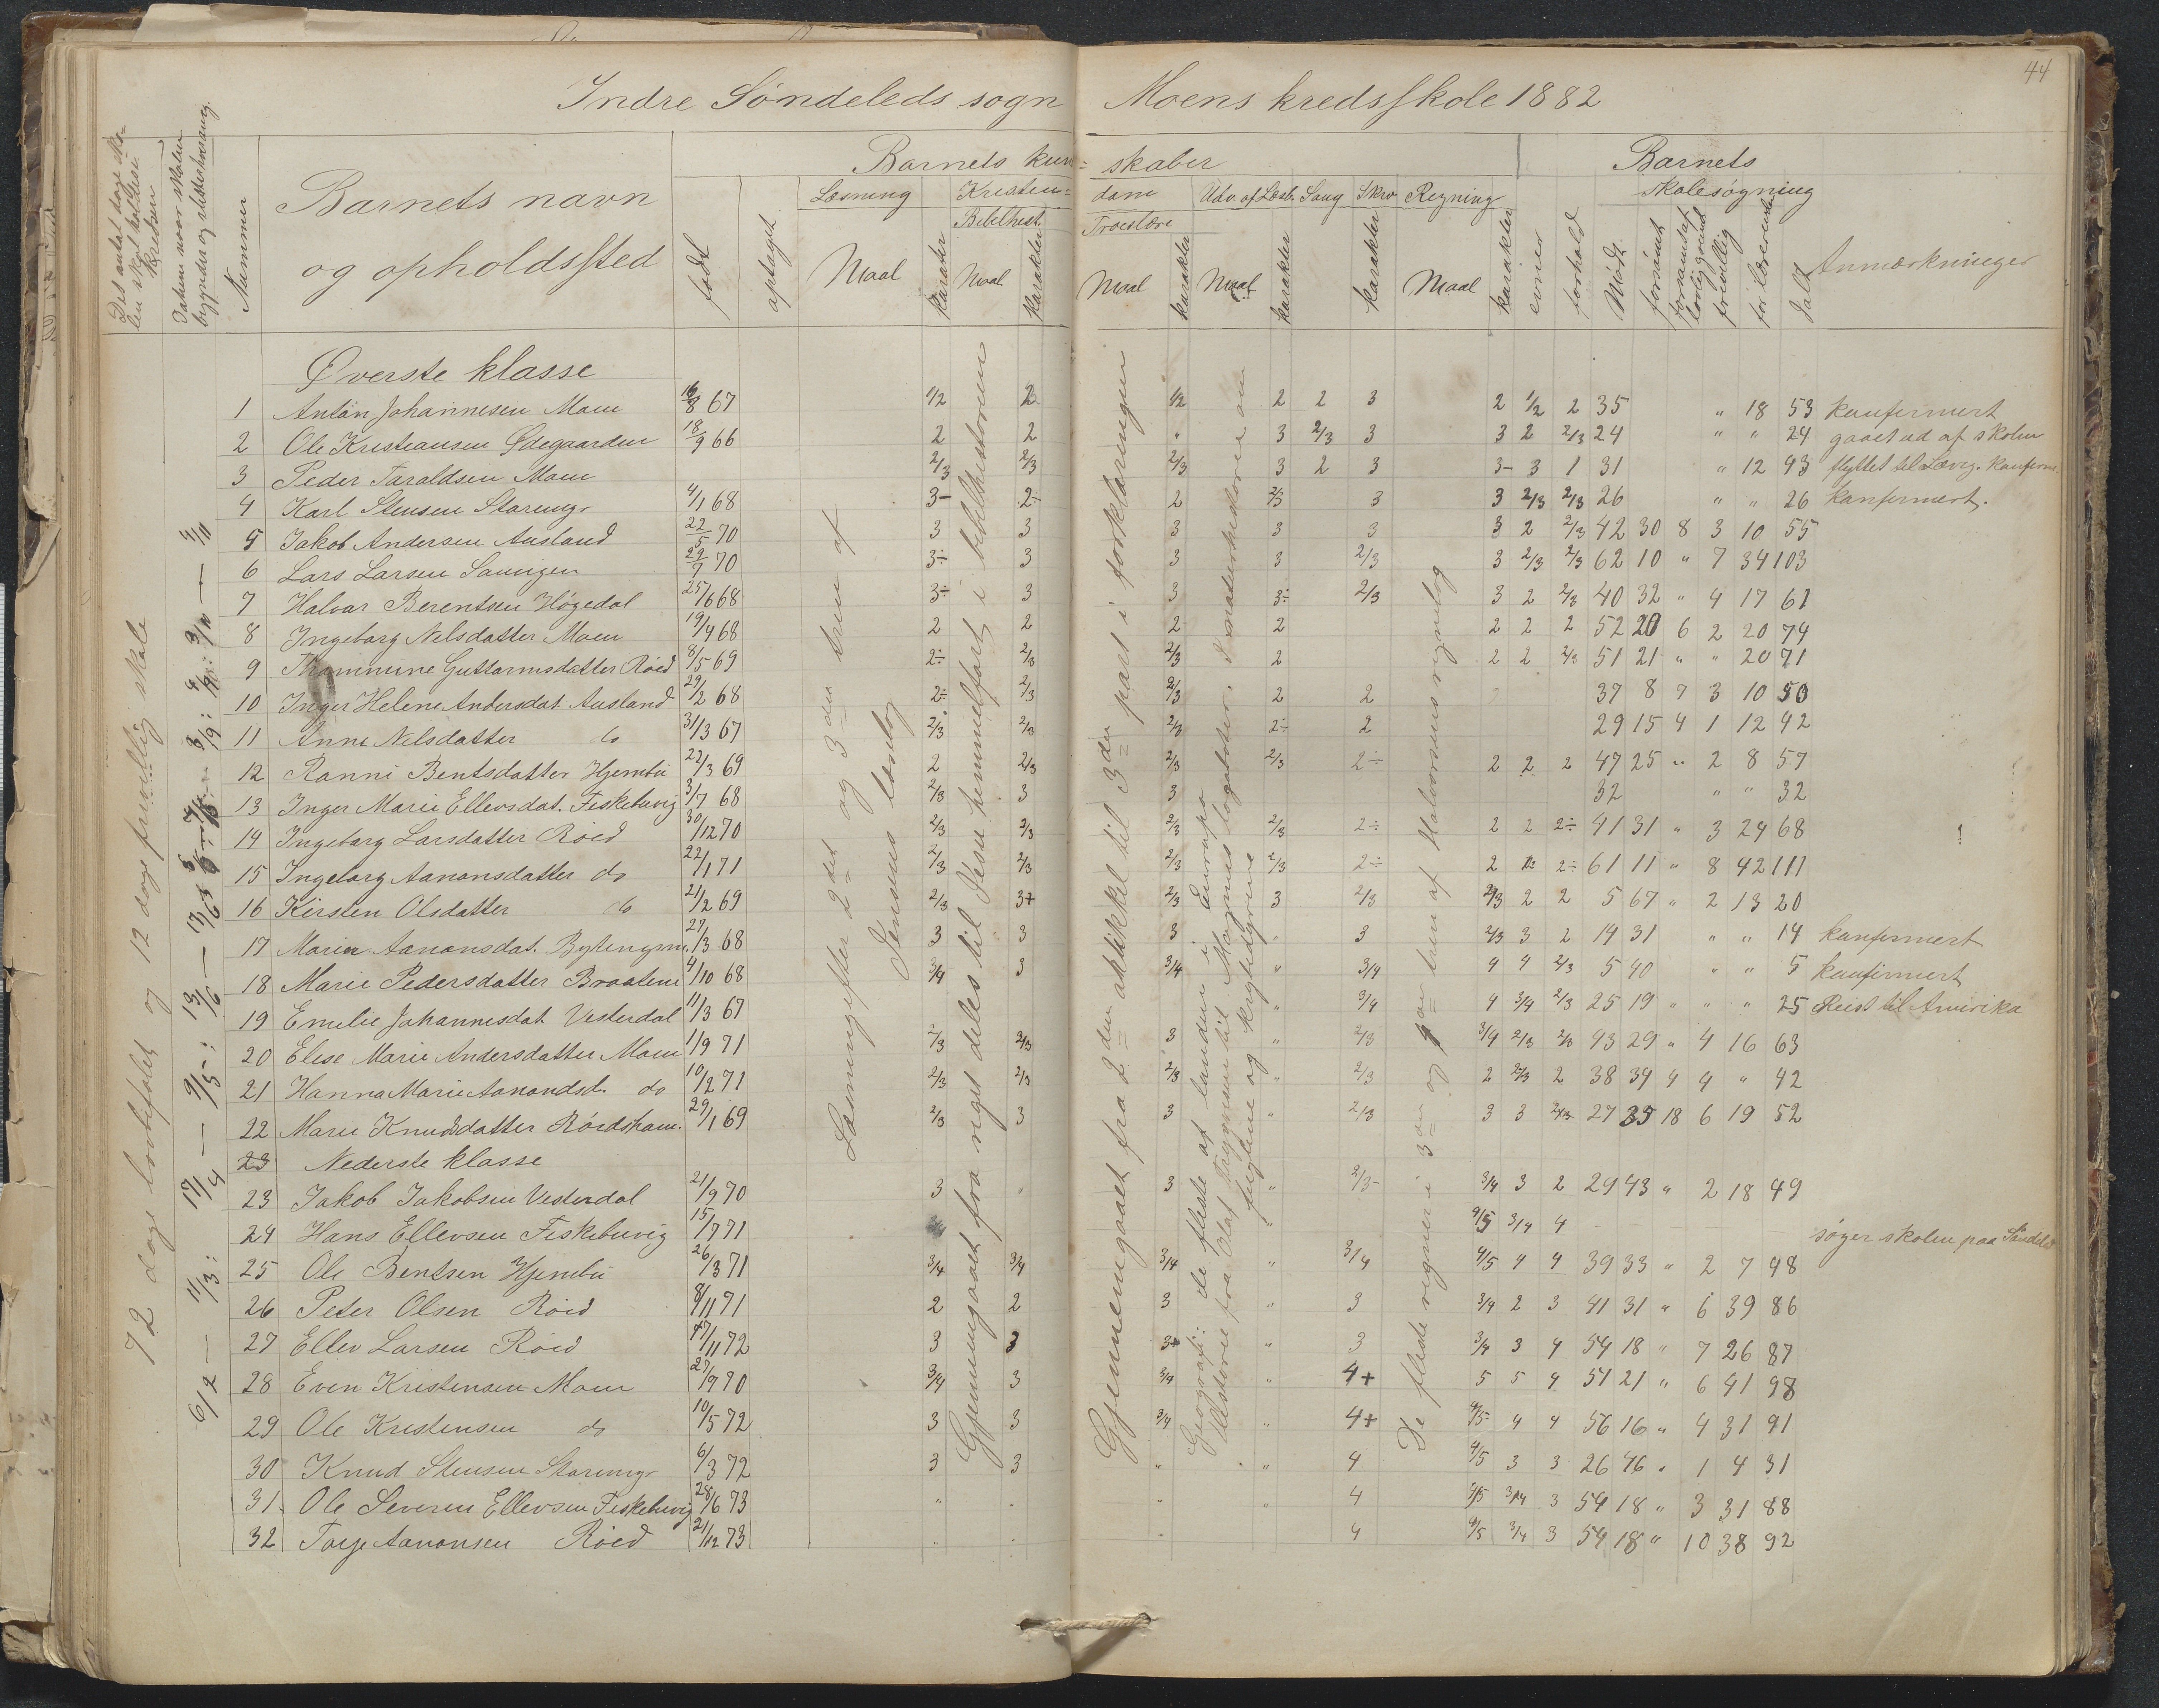 44
Indre Søndeleds sogn Moens kredsskole 1882
Det antal dage skolen skal holdes i kredsen
Datum naar skolen begynder og slutter hver gang.
Nummer
Barnets navn og opholdssted
født
optaget
Barnets kundskaber
Læsning Kristendom Udv. af Læseb. Sang Skrv Regning
Bibelhist. Troeslære
Maal karakter Maal karakter Maal karakter Maal karakter karakter Maal karakter
evner forhold
Barnets skolesøgning
Mødt forsømt frivillig for læreren Ialt
Anmærkninger
72 dage lovbefalet og 12 dage frivillig skole
6/2 — 11/3: 17/4 — 9/5: 13/6 —
Læsning efter 2det og 3die trin af Jensens læsebog
Gjennemgaaet fra riget deles til Jesu himmelfart i bibelhistorien
Gjennemgaaet fra 2den artikkel til 3die part i forklaringen
Geografi: de fleste af landene i Europa
Historie fra Olaf Trygvesøn til Magnus lagabøter. I naturhistorie om fuglene og krybedyrene
De fleste regner i 3die og 4de trin af Halvorsens regnebog
Øverste klasse
1 Anton Johannesen Moen 16/8 67 1/2 2 1/2 2 2 3 2 1/2 2 35 " 18 53 konfirmert
2 Ole Kristiansen Ødegaarden 18/9 66 2 2 " 3 2/3 3 3 2 2/3 24 " " 24 gaaet ud af skolen
3 Peder Taraldsen Moen 2/3 2/3 2/3 3 2 3 3- 3 1 31 " 12 43 flyttet til Laurv. konfirm.
4 Karl Stensen Storemyr 4/1 68 3- 2÷ 2 2/3 3 3 2/3 2/3 26 " " 26 konfirmert.
5 Jakob Andersen Ausland 22/5 70 3 3 3 3 3 3 2 2/3 42 30 8 3 10 55
6 Lars Larsen Saungen 22/7 70 3÷ 3 3 3 2/3 3 2/3 2/3 62 10 " 7 34 103
7 Halvor Berentsen Høgedal 25/6 68 3÷ 3 3 3÷ 2/3 3 2 2/3 40 32 " 4 17 61
8 Ingeborg Nelsdatter Moen 19/4 68 2 2 2 2 2 2 2 52 20 6 2 20 74
9 Thommine Guttormsdatter Røed 8/5 69 2÷ 2/3 2/3 2 2 2 2/3 51 21 " " 20 71
10 Inger Helene Andersdat. Ausland 29/2 68 2÷ 2/3 2/3 2 2 37 8 7 3 10 50
11 Anne Nelsdatter do 31/3 67 2/3 2/3 2/3 2÷ 2 29 15 4 1 12 42
12 Ranni Bentsdatter Hjembu 22/3 69 2 2/3 2/3 2/3 2÷ 2 2 2 47 25 " 2 8 57
13 Inger Marie Ellevsdat. Fiskebuvig 3/7 68 2/3 3 3 32 " " 32
14 Ingeborg Larsdatter Røed 30/12 70 2/3 2/3 2/3 2/3 2÷ 2 2 2÷ 41 31 " 3 24 68
15 Ingeborg Aanonsdatter do 22/1 71 2/3 2/3 2/3 2/3 2÷ 2 2 2÷ 61 11 " 8 42 111
16 Kirsten Olsdatter do 21/2 69 2/3 3+ 2/3 3 2/3 2/3 2 2 5 67 " 2 13 20
17 Maria Aanonsdat. Bytingsm. 27/3 68 3 3 3 " 3 2/3 3 2 14 31 " " 14 konfirmert
18 Marie Pedersdatter Braaten 4/10 68 3/4 3 3/4 " 3/4 4 4 2/3 5 40 " " 5 konfirmert
19 Emilie Johannesdat Vesterdal 11/3 67 " 3/4 4 3/4 2/3 25 19 " " " 25 Reist til Amerika
20 Elise Marie Andersdatter Moen 11/9 71 2/3 2/3 3 " 2/3 3/4 2/3 2/3 43 29 " 4 16 63
21 Hanna Marie Aanondsd. do 10/2 71 2/3 2/3 2/3 " 2/3 2 2/3 2 38 34 4 4 " 42
22 Marie Knudsdatter Røedsham. 29/1 69 2/3 3 3 " 2/3 3 3 2/3 27 35 18 6 19 52
23 Nederste klasse
23 Jakob Jakobsen Vesterdal 21/9 70 3 " 3 " 2/3- 3/4 3 2 29 43 " 2 18 49
24 Hans Ellevsen Fiskebuvig 15/7 71 4/5 3/4 4 søger skolen paa Søndeled
25 Ole Bentsen Hjembu 26/3 71 3/4 3/4 3/4 " 3/4 4/5 4 4 39 33 " 2 7 48
26 Peter Olsen Røed 8/11 71 2 2 3 " 3 3/4 2 3 41 31 " 6 39 86
27 Ellev Larsen Røed 17/11 72 3 3 3÷ " 3 3/4 3 4 54 18 " 7 26 87
28 Even Kristensen Moen 27/9 70 3/4 3 3/4 " 4+ 5 5 4 51 21 " 6 41 98
29 Ole Kristensen do 10/5 72 3 3 3/4 " 4+ 4/5 4 4 56 16 " 4 31 91
30 Knud Stensen Storemyr 6/3 72 3 3 " " 4 4/5 3 3 26 46 " 1 4 31
31 Ole Severin Ellevsen Fiskebuvig 28/6 73 " " " " 4 4/5 3/4 3 54 18 " 3 31 88
32 Torje Aanonsen Røed 21/12 73 " " " 4 4/5 3/4 3 54 18 " 10 38 92